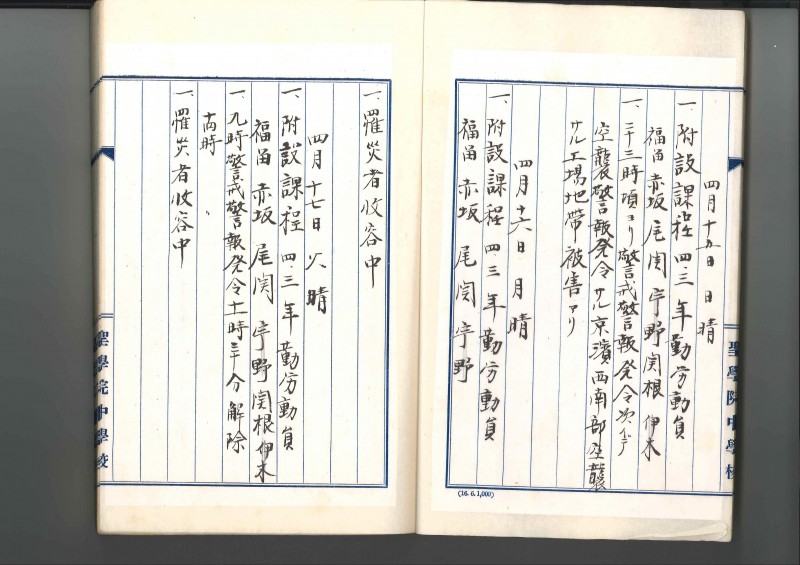 四月十五日 日 晴
一、附設課程 四、三年勤労動員
福田 赤坂 尾関 宇野 関根 伊木
一、二十三時頃ヨリ警戒警報発令次イデ
空襲警報発令サル京濱西南部空襲
サル工場地帯被害アリ
四月十六日 月 晴
一、附設課程 四、三年勤労動員
福田 赤坂 尾関 宇野
聖學院中學校
(16. 6. 1,000)
一、罹災者收容中
四月十七日 火 晴
一、附設課程 四、三年勤労動員
福田 赤坂 尾関 宇野 関根 伊木
一、九時警戒警報発令十時三十分解除
十四時 〃
一、罹災者收容中
聖學院中學校